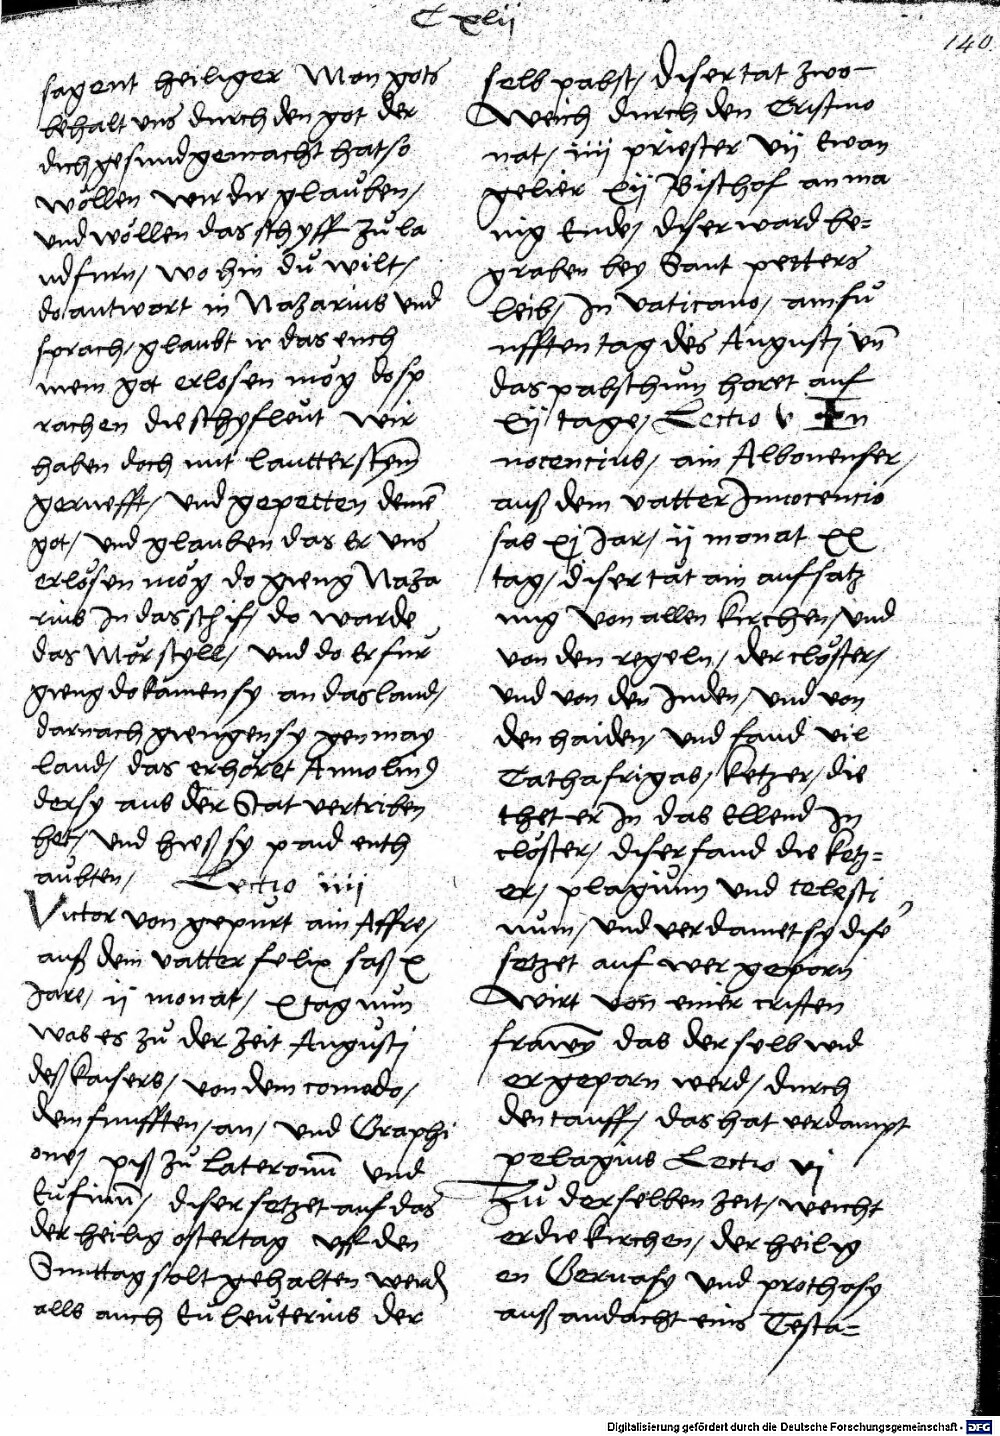 C xlij
140
sagent heiliger Man gots
behalt uns durch den got der
dich gesund gemacht hat so
wöllen wir dir glauben/
und wöllen das schyff zů la
nd furn/ wo hin dů wilt/
do antwort in Nazarius und
sprach/ glaubt ir das euch
mein got erlosen mög do sp
rachen die schyfleut wir
haben doch mit lautter stym̄
geruefft/ und gepetten deinē
got/ und glauben das Er uns
erlösen mög do gieng Naza
rius In das schif/ do warde
das Mör styll/ und do Er fur
gieng do kamen sy an das land/
darnach giengen sy gen may
land/ das erhöret Annolin9
der sy aus der Stat vertriben
het/ und hieß sy paid enth
aubten/ Lectio iiij
Victor von gepurt ain Affre/
auß dem vatter felix saß x
Jare/ ij monat/ x tag nun
was es zů der zeit Augusti
deß kaisers/ von dem comodo/
dem funfften/ an/ und Graphi
one/ piß zů Lateronū und
Rufinū/ diser setzet auf das
der heilig ostertag uff den
Sunttag solt gehalten werdn
alls auch Euleuterius der
selb pabst/ diser tat zwo
Weich durch den Cristmo
nat/ iiij priester vij Ewan
gelier xij Bischof an ma
nig Ende/ diser ward be=
graben bey Sant petters
leib/ In vaticano/ am fu
nfften tag des Augusti un̄
das pabsthum horet auf
xij tage/ Lectio v In
nocencius/ ain Albonenser/
auß dem vatter Innocencio
sas xj Jar/ ij monat xx
tag/ diser tat ain aufsatz
ung von allen kirchen/ und
von den regeln/ der clöster/
und von den Juden/ und von
den haiden/ und fand vil
Cathafrigas/ ketzer/ die
thet er In das Ellend In
clöster/ diser fand die ketz=
er/ plagium und celesti
num/ und verdamet sy dise
setzet auf wer geporn
Wirt von einer cristen
frawen das der selb wid
er geporn werd/ durch
den tauff/ das hat verdampt
pelagius Lectio vj
Zu der selben zeit/ weicht
er die kirchen/ der heilig
en Gervasy und prothasy
auß andacht eins Testa=
Digitalisierung gefördert durch die Deutsche Forschungsgemeinschaft - DFG